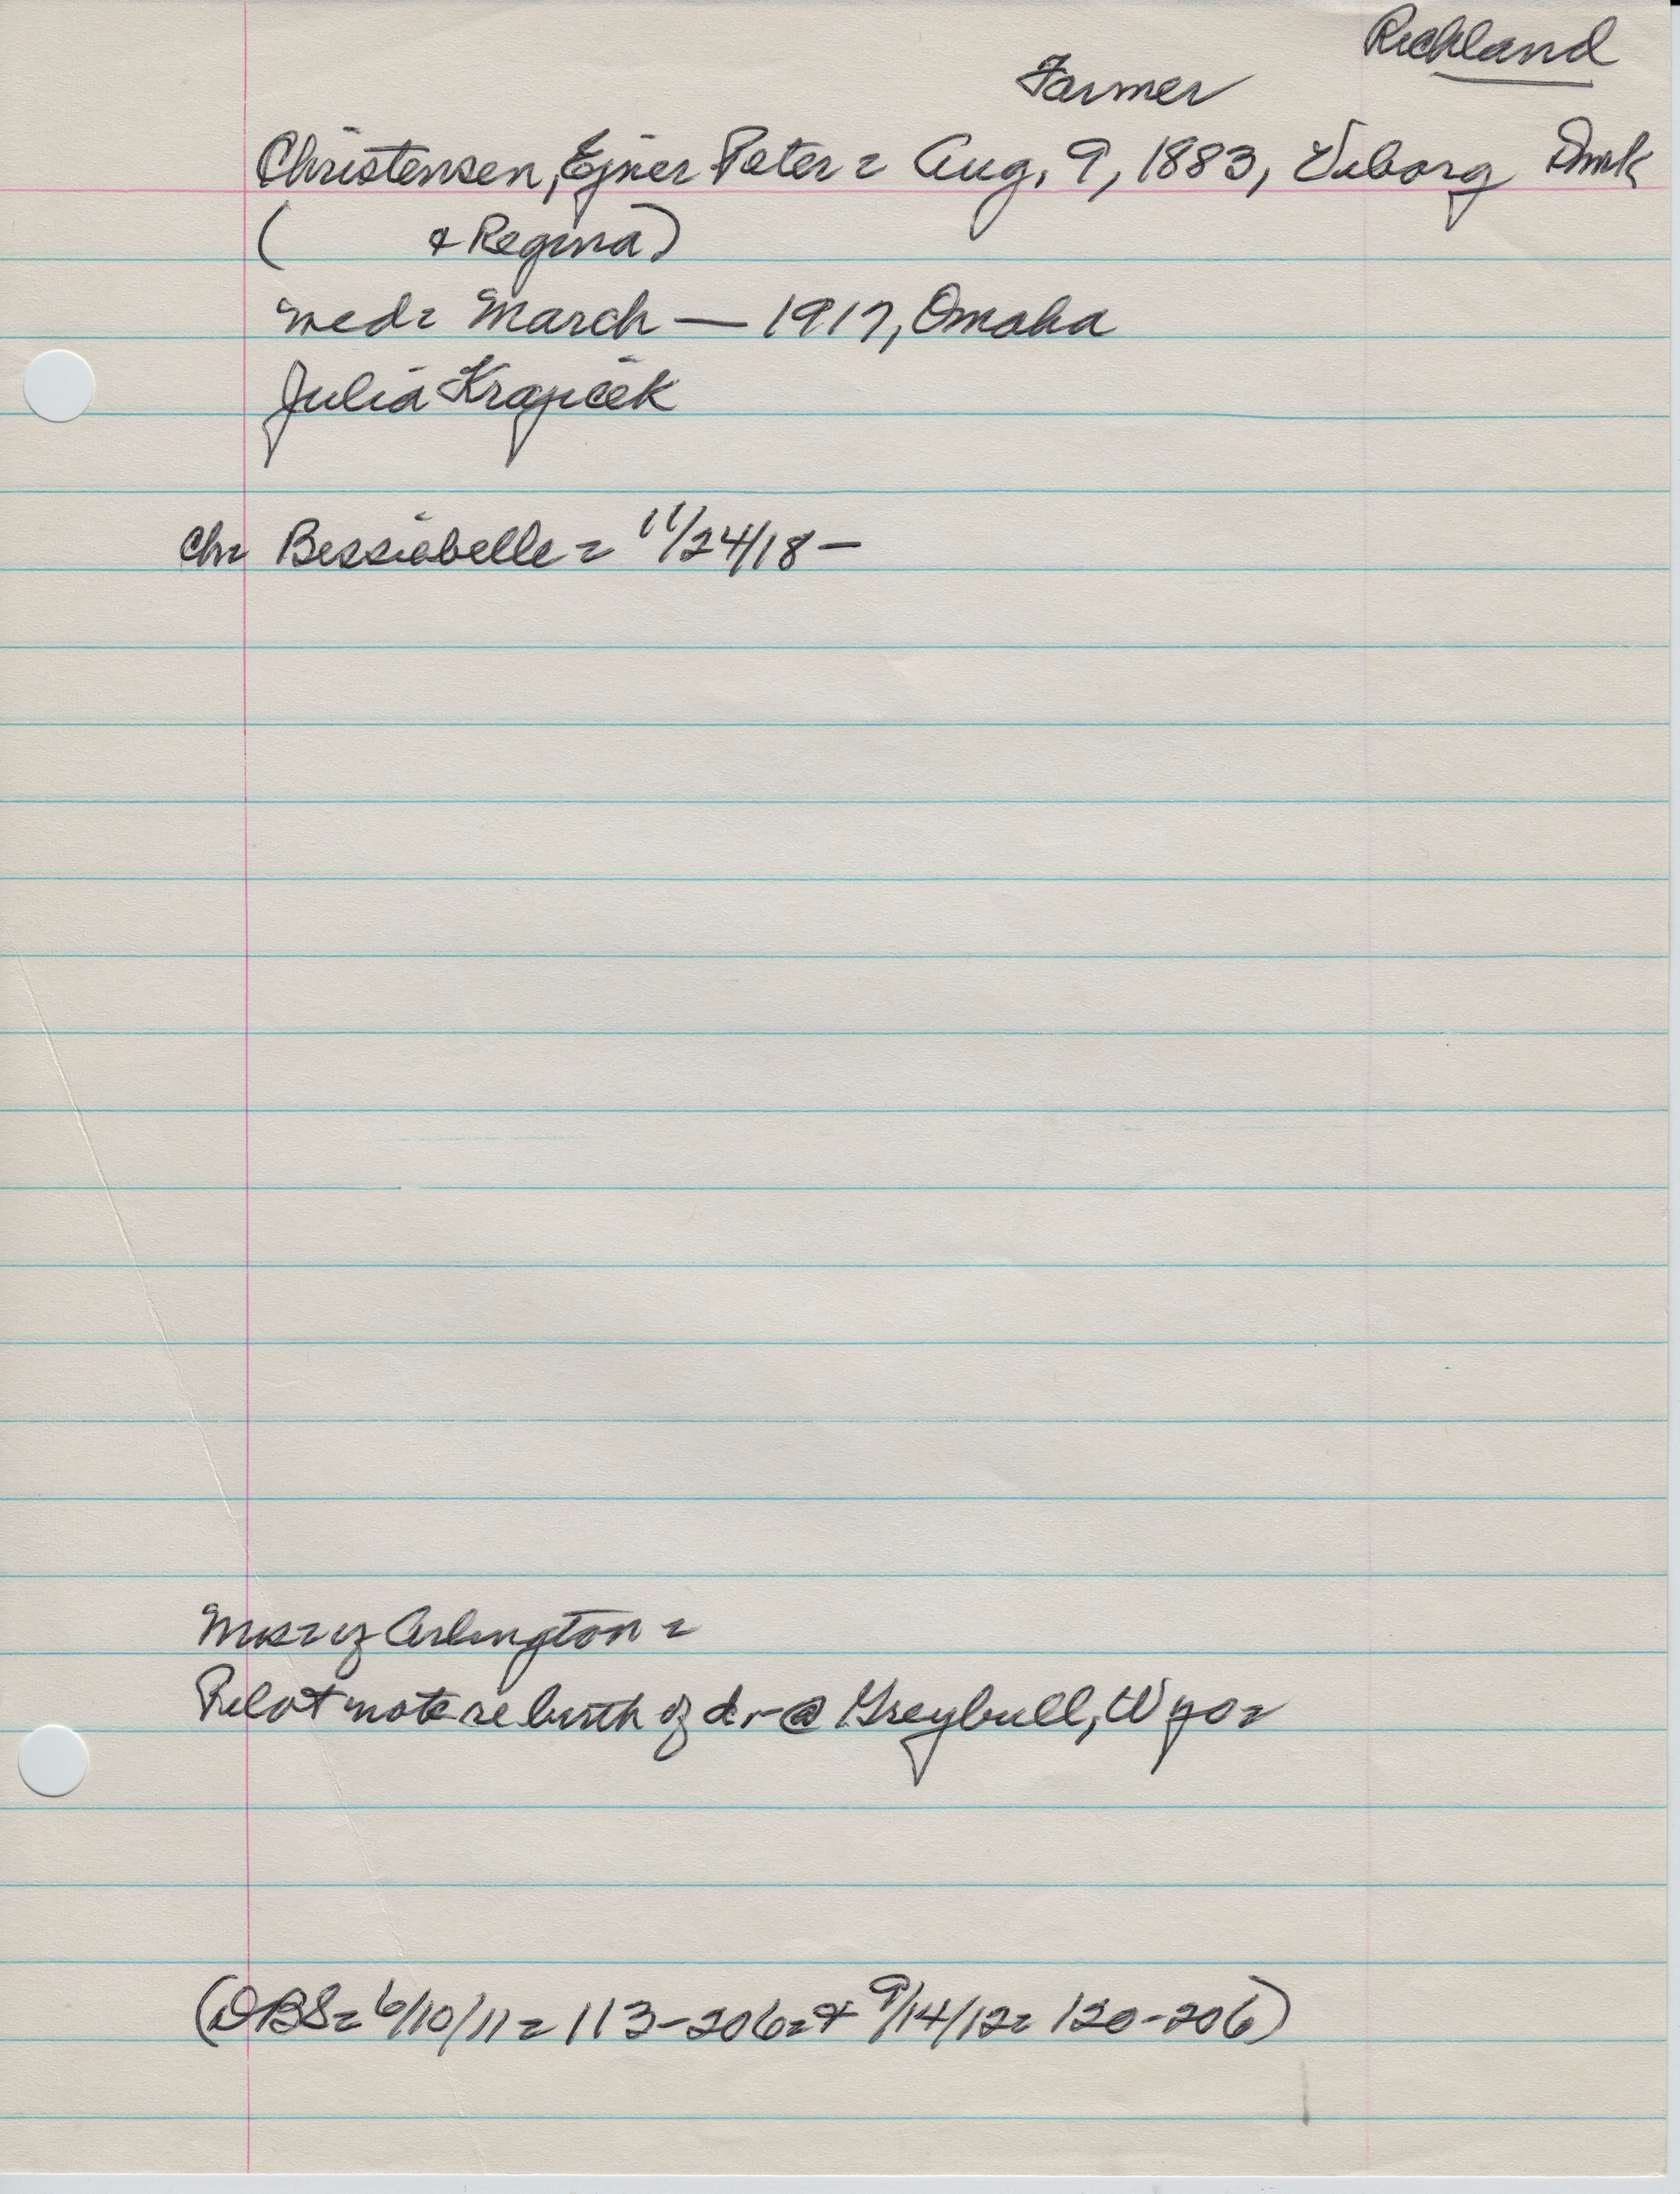 Richland
Farmer
Christensen, Ejner Peter = Aug. 9, 1883, Viborg Dmk
( & Regina)
med= March — 1917, Omaha
Julia Krajicek
Ch= Bessiebelle = 11/24/18 —
of Arlington =
Pilot note re birth of d. - @ Greybull, Wyo =
(DBS= 6/10/11 = 113-206= & 9/14/12= 120-206)